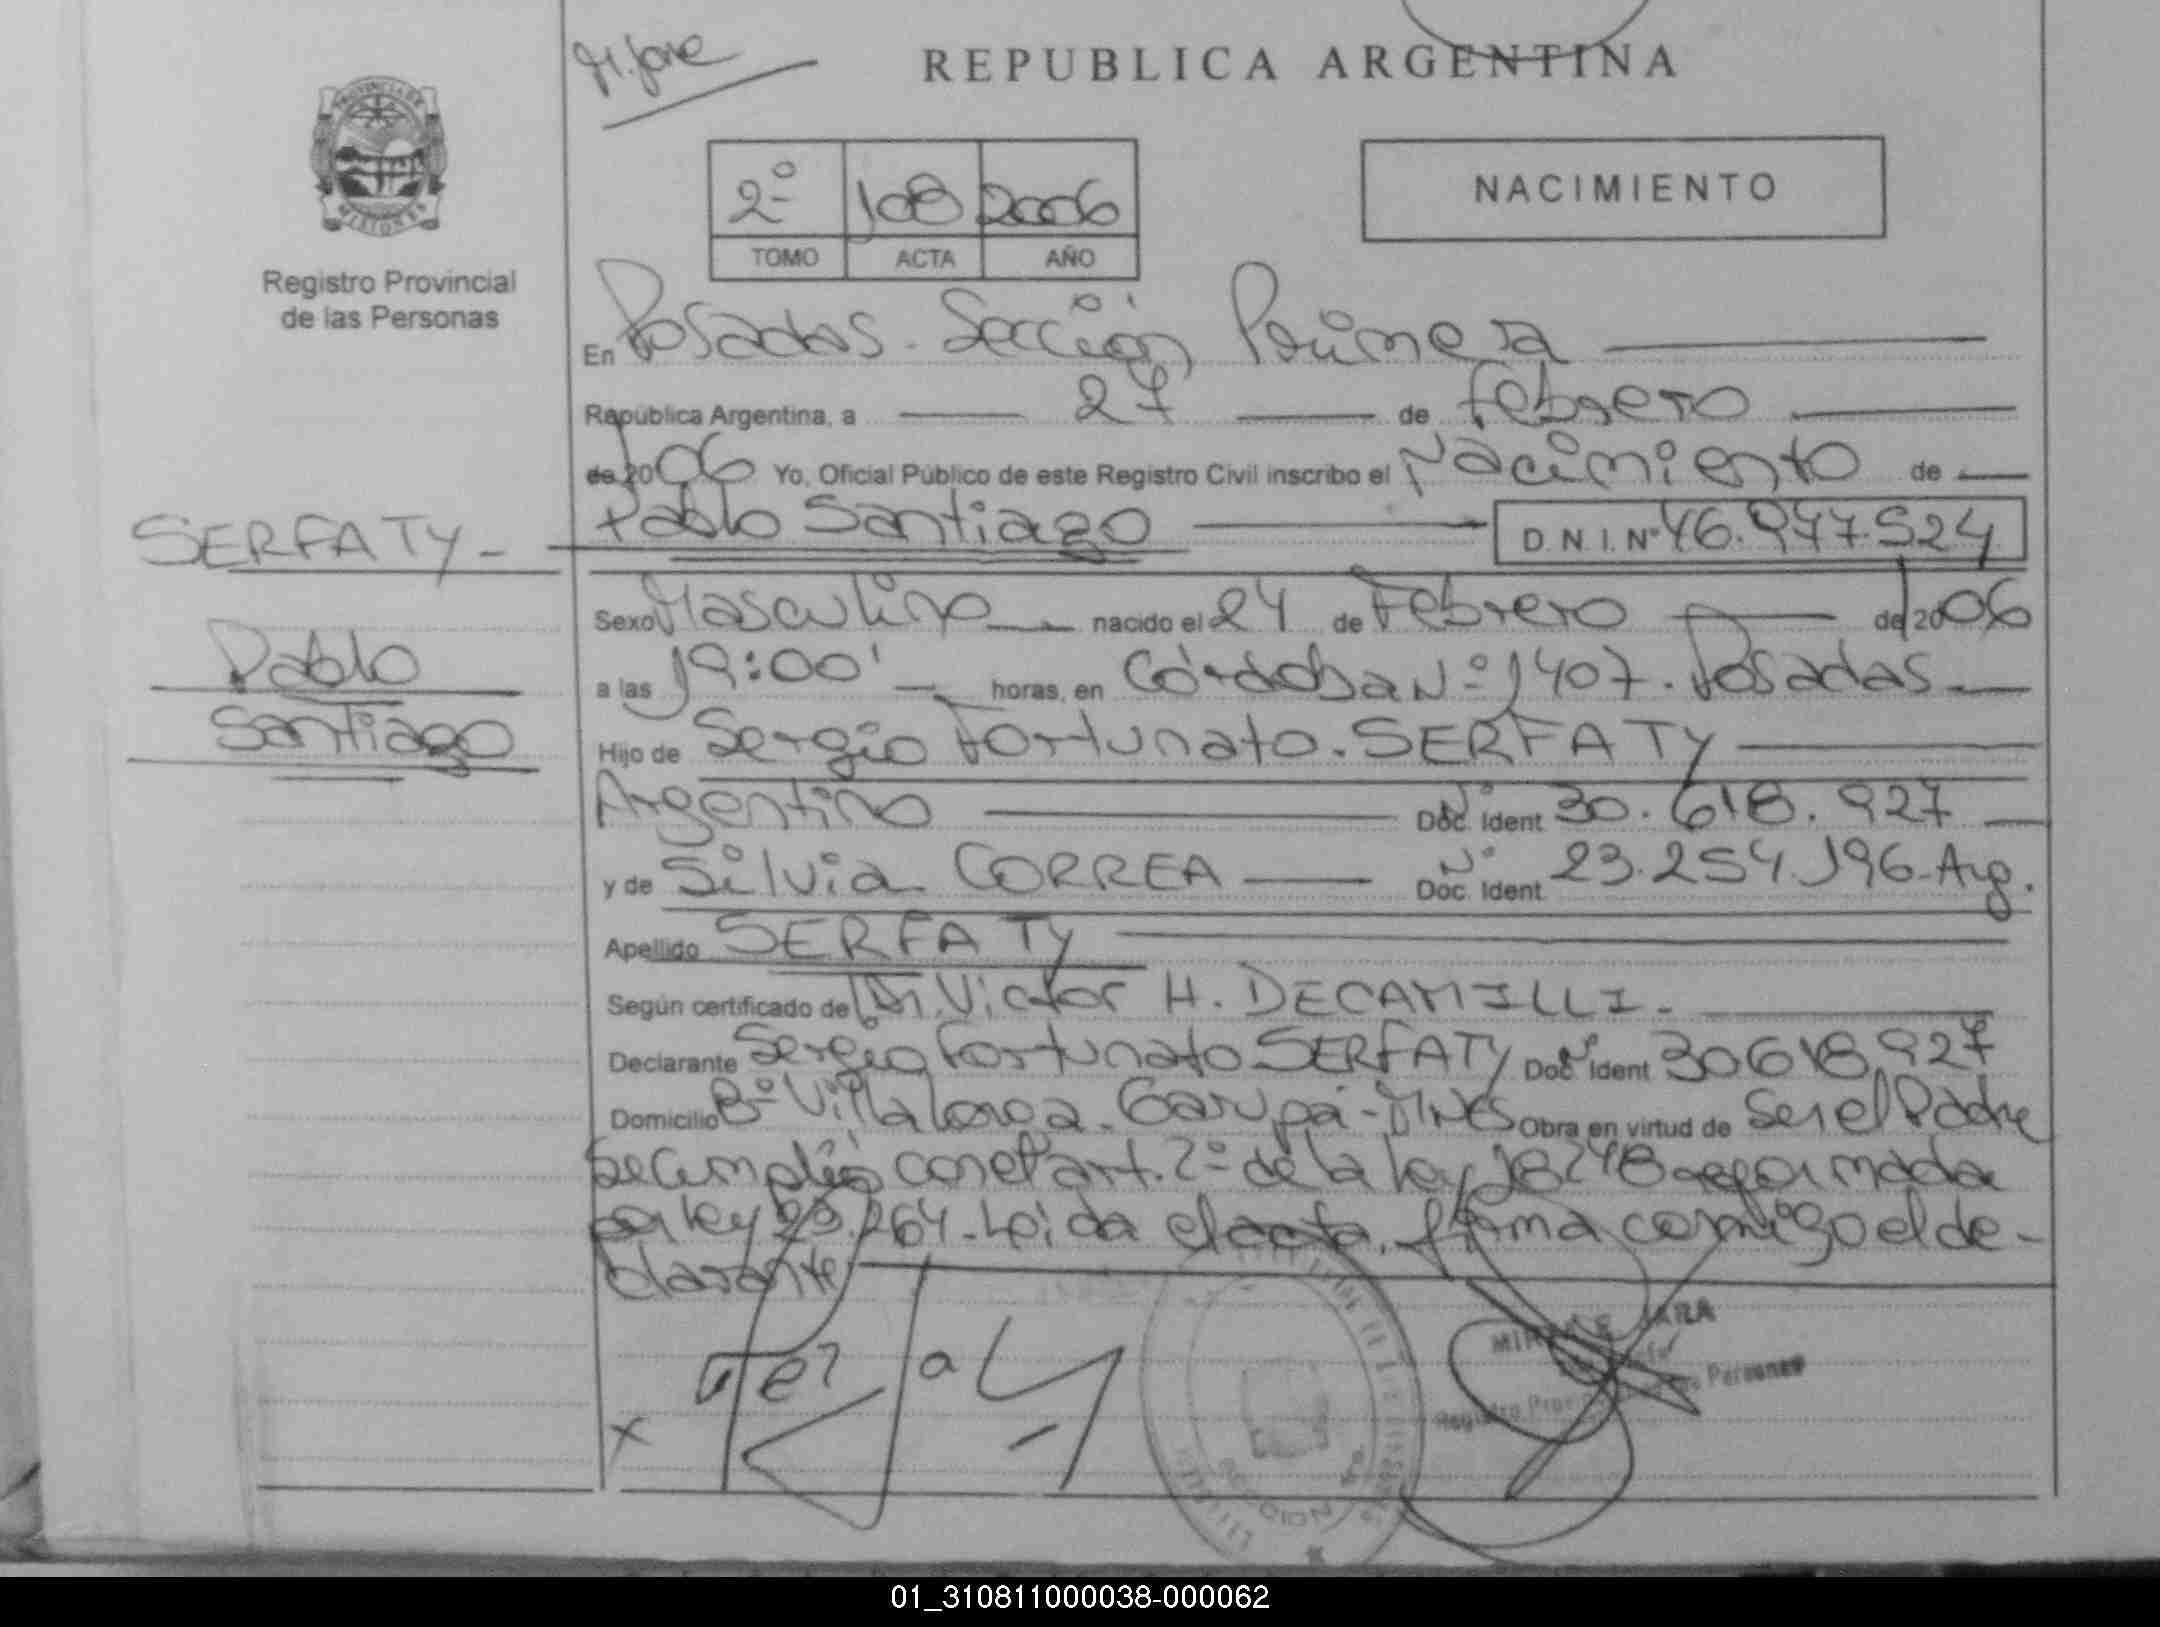 M. Jose
REPUBLICA ARGENTINA
PROVINCIA DE
MISIONES
Registro Provincial
de las Personas
2º 108 2006
TOMO ACTA AÑO
NACIMIENTO
En Posadas. Sección Primera
República Argentina, a 27 de Febrero
de 2006 Yo, Oficial Público de este Registro Civil inscribo el Nacimiento de
SERFATY - Pablo Santiago D.N.I. Nº 46.977.524
Sexo Masculino nacido el 24 de Febrero de 2006
Pablo
a las 19:00' horas, en Córdoba Nº 1407. Posadas
Santiago
Hijo de Sergio Fortunato. SERFATY
Argentino Nº Doc. Ident 30.618.927
y de Silvia CORREA Nº Doc. Ident 23.254.196-Arg.
Apellido SERFATY
Según certificado de Dr. Victor H. DECAMILLI.
Declarante Sergio Fortunato SERFATY Nº Doc. Ident 30618.927
Domicilio Bº Villa Longa. Garupá-MNES Obra en virtud de Ser el Padre
Se cumplió con el art. 2º de la ley 18248 reformada
por ley 23.264. Leída el acta, firma conmigo el de-
clarante
x
JARA
Registro Provincial de las Personas
SECCION 1º
01_310811000038-000062